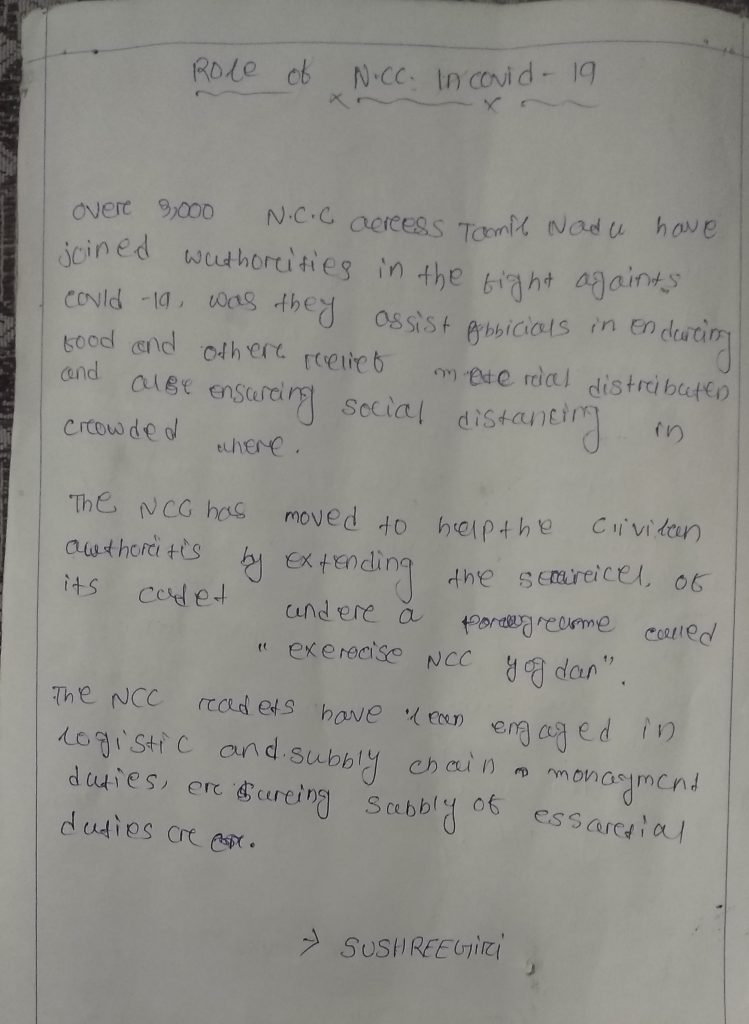 Role of N.CC. In covid - 19
overe 3,000 N.C.C acreess Tamil Nadu have
joined wuthoreities in the fight againts
covid -19, was they assist in endureing
food and othere reelief mete reial distreibuten
and also ensureing social distancing in
creowded where.
The NCC has moved to help the Ciivilean
authoreitis by extending the of
its cadet undere a called
" exerecise NCC yog dan".
The NCC readets have engaged in
logistic and subbly chain monagment
duties, subbly of
duties ere
→ SUSHREE Girei